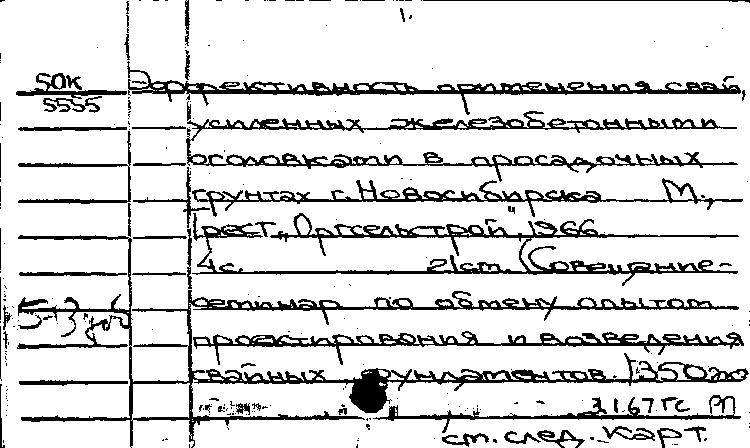 1.
50к Эффективность применения свай,
5555
усиленных железобетонными
оголовками в просадочных
грунтах г. Новосибирска М.,
Трест „Оргсельстрой", 1966.
4 с. 21 см. (Совещание-
семинар по обмену опытом
проектирования и возведения
свайных фундаментов.) 350
167
см. след. карт.